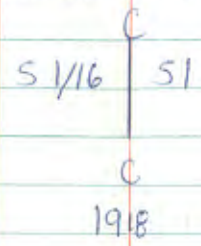 C
S 1/16 | S1
C
1918